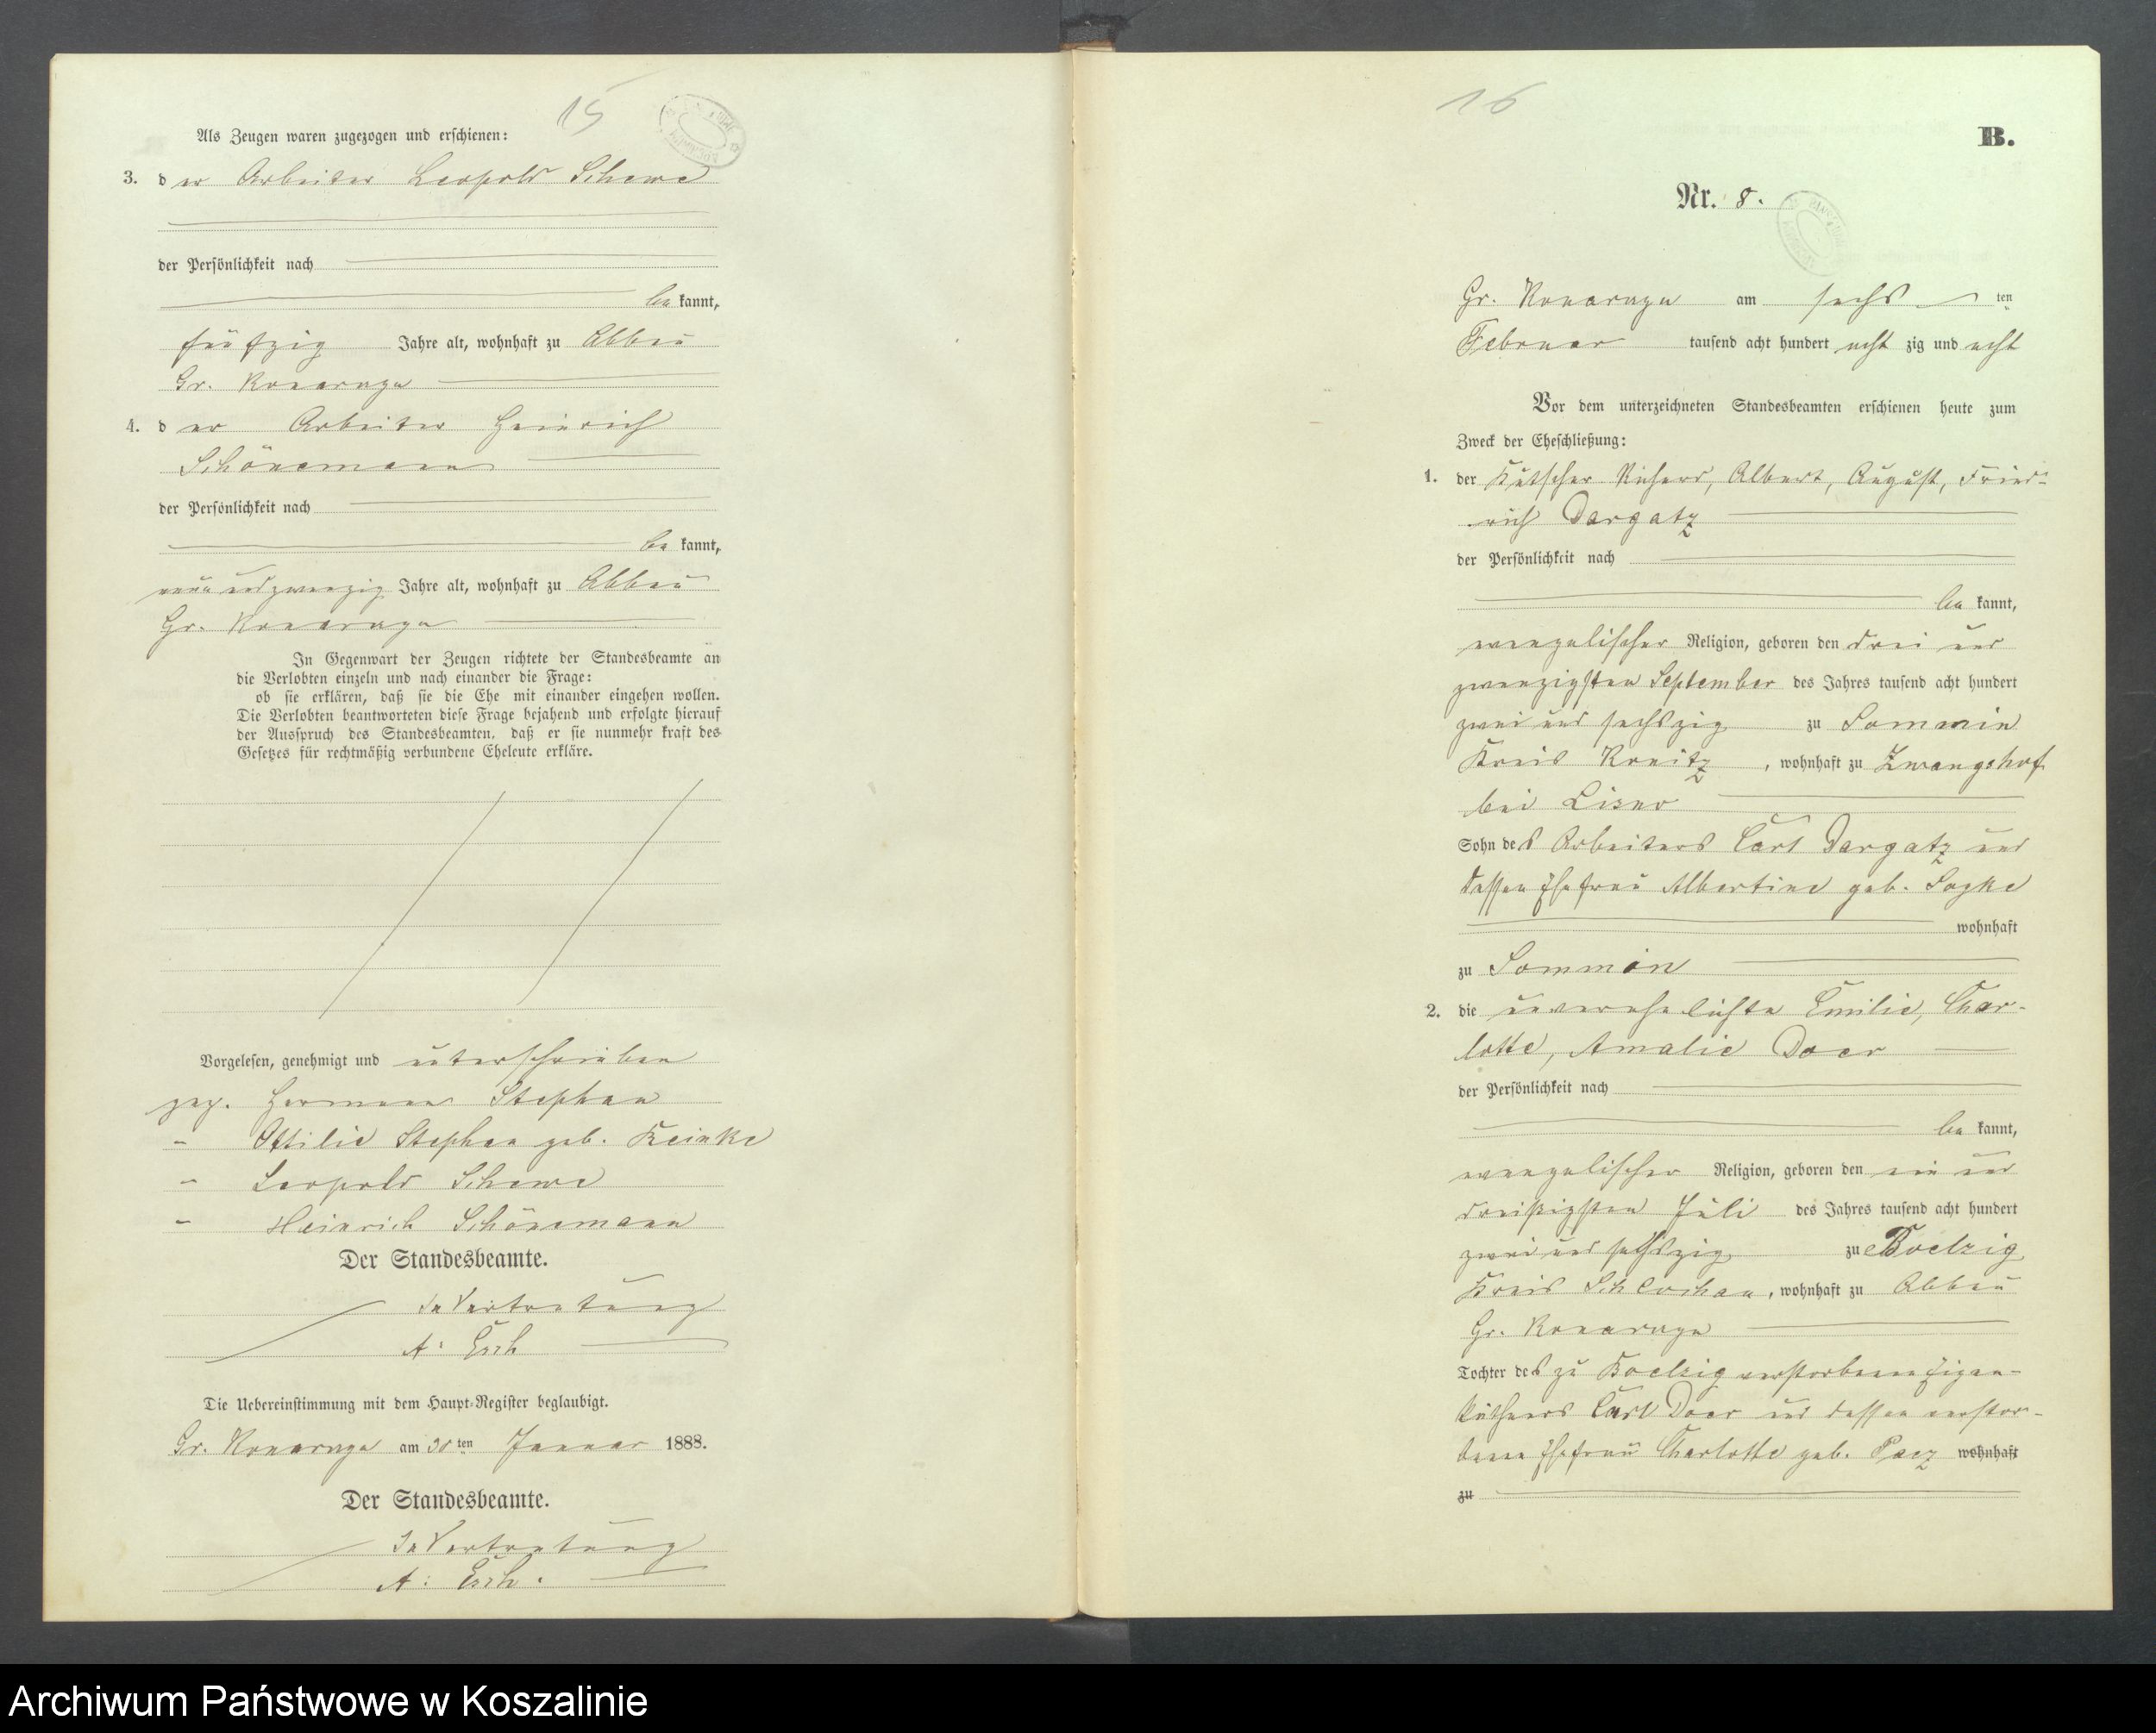 15
Als Zeugen waren zugezogen und erschienen:
3. der Arbeiter Leopold Schewe
der Persönlichkeit nach
bekannt,
fünfzig Jahre alt, wohnhaft zu Abbau
Gr. Konarzyn
4. der Arbeiter Heinrich
Schönemann
der Persönlichkeit nach
bekannt,
neun und zwanzig Jahre alt, wohnhaft zu Abbau
Gr. Konarzyn
In Gegenwart der Zeugen richtete der Standesbeamte an
die Verlobten einzeln und nach einander die Frage:
ob sie erklären, daß sie die Ehe mit einander eingehen wollen.
Die Verlobten beantworteten diese Frage bejahend und erfolgte hierauf
der Ausspruch des Standesbeamten, daß er sie nunmehr kraft des
Gesetzes für rechtmäßig verbundene Eheleute erkläre.
Vorgelesen, genehmigt und unterschrieben
gez. Hermann Stephan
" Ottilie Stephan geb. Reinke
" Leopold Schewe
" Heinrich Schönemann
Der Standesbeamte.
In Vertretung
A. Esch
Die Uebereinstimmung mit dem Haupt-Register beglaubigt.
Gr. Konarzyn am 30ten Januar 1888.
Der Standesbeamte.
In Vertretung
A. Esch.
16
B.
Nr. 8.
Gr. Konarzyn am sechsten
Februar tausend acht hundert achtzig und acht
Vor dem unterzeichneten Standesbeamten erschienen heute zum
Zweck der Eheschließung:
1. der Kutscher Richard, Albert, August, Fried-
rich Dargatz
der Persönlichkeit nach
bekannt,
evangelischer Religion, geboren den drei und
zwanzigsten September des Jahres tausend acht hundert
zwei und sechszig zu Sommin
Kreis Konitz, wohnhaft zu Zwangshof
bei
Sohn des Arbeiters Carl Dargatz und
dessen Ehefrau Albertine geb.
wohnhaft
zu Sommin
2. die unverehelichte Emilie, Char-
lotte, Amalie Doer
der Persönlichkeit nach
bekannt,
evangelischer Religion, geboren den ein und
dreißigsten Juli des Jahres tausend acht hundert
zwei und sechszig zu Boelzig
Kreis Schlochau, wohnhaft zu Abbau
Gr. Konarzyn
Tochter des zu Boelzig verstorbenen Eigen-
käthners Carl Doer und dessen verstor-
benen Ehefrau Charlotte geb. Paez wohnhaft
zu
Archiwum Państwowe w Koszalinie